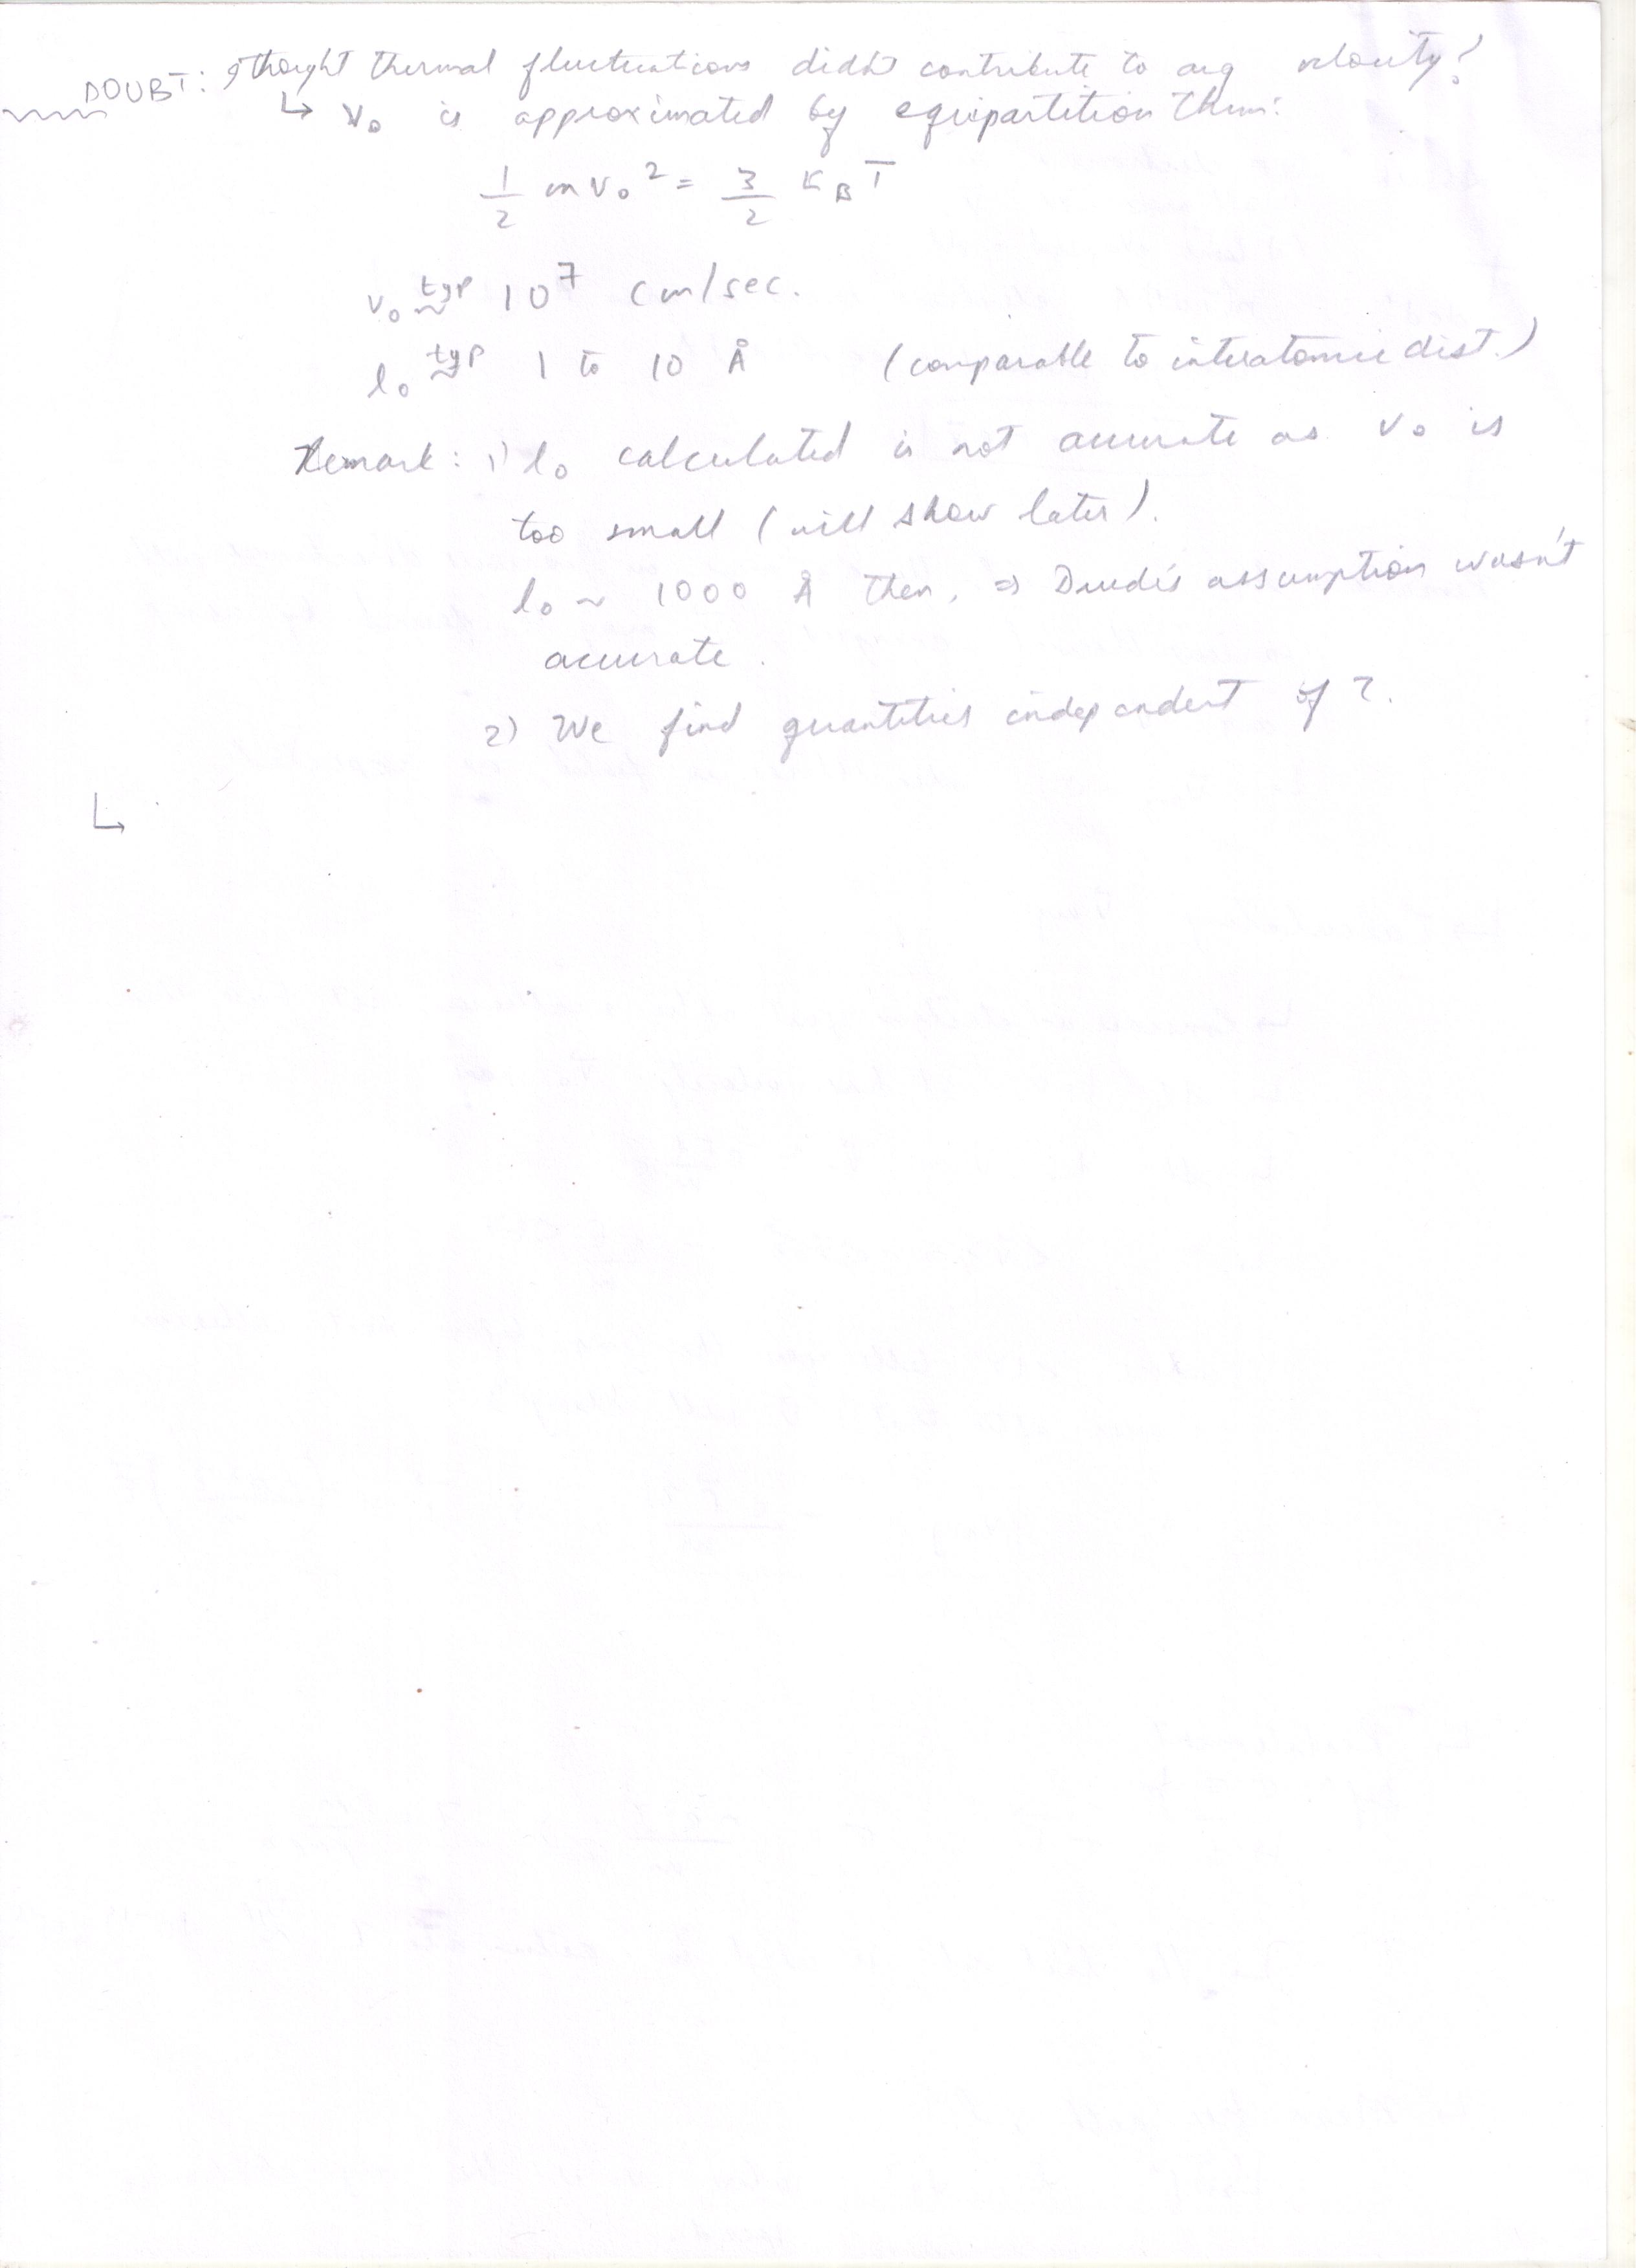 DOUBT: I thought thermal fluctuations didn't contribute to avg velocity?
↳ v₀ is approximated by equipartition thm:
1/2 m v₀² = 3/2 K_B T
v₀ ~ typ 10⁷ cm/sec.
l₀ ~ typ 1 to 10 Å (comparable to interatomic dist.)
Remark: 1) l₀ calculated is not accurate as v₀ is
too small (will show later).
l₀ ~ 1000 Å then, ⇒ Drude's assumption wasn't
accurate.
2) We find quantities independent of τ.
↳